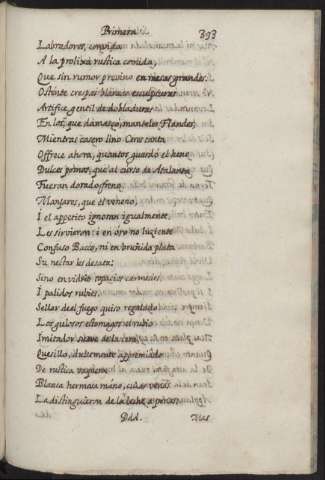 Primera 393
Labradores, convida
A la prolixa rustica comida,
Que sin rumor previno en mesas grandes.
Ostente crespas blancas esculpturas
Artifice gentil de dobladuras
En los, que damascò, manteles Flandes,
Mientras casero lino Ceres tanta
Offrece ahora, quantos guardó el heno
Dulces pomos, que al curso de Atalanta
Fueran dorado freno.
Manjares, que el veneno,
I el appetito ignoran igualmente,
Les sirvieron: i en oro no luziente
Confuso Baco, ni en bruñida plata
Su nectar les desata;
Sino en vidrio topacios carmesies
I palidos rubies.
Sellar de el fuego quiso regalado
Los gulosos estomagos el rubio
Imitador suave de la cera,
Quesillo, dulcemente appremiado
De rustica vaquera
Blanca hermosa mano, cuias venas
La distinguieron de la leche a penas.
Ddd. Mas